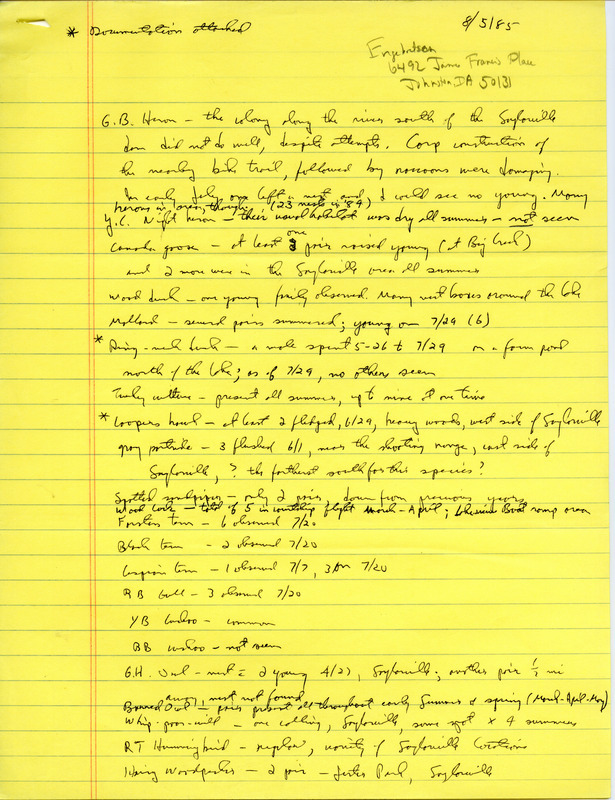 * Documentation attached
8/5/85
Engebretsen
6492 James Francis Place
Johnston IA 50131
G.B. Heron - the colony along the river south of the Saylorville
dam did not do well, despite attempts. Corp construction of
the nearby bike trail, followed by raccoons were damaging.
In early July one left a nest and I could see no young. Many
herons in area, though. (23 nests in '84)
Y.C. Night heron - their usual habitat was dry all summer - not seen
Canada goose - at least one pair raised young (at Big Creek)
and 2 more were in the Saylorville area all summer
Wood duck - one young family observed. Many nest boxes around the lake
Mallard - several pairs summered; young on 7/29 (6)
* Ring-neck duck - a male spent 5-26 to 7/29 on a farm pond
north of the lake; as of 7/29, no others seen
Turkey vulture - present all summer, up to nine at one time
* Coopers hawk - at least 2 fledged, 6/29, heavy woods, west side of Saylorville
gray partridge - 3 flushed 6/1, near the shooting range, east side of
Saylorville, ? the farthest south for this species?
Spotted sandpiper - only 2 pairs, down from previous years
Wood cock - total of 5 in courtship flight March-April; Boat ramp area
Forsters tern - 6 observed 7/20
Black tern - 2 observed 7/20
Caspian tern - 1 observed 7/7, 3 on 7/20
RB Gull - 3 observed 7/20
YB Cuckoo - common
BB cuckoo - not seen
G.H. Owl - nest = 2 young 4/27, Saylorville; another pair 1/2 mi
away, nest not found
Barred Owl - pair present all throughout early Summer & spring (March-April-May)
Whip-poor-will - one calling, Saylorville, same spot x 4 summers
RT Hummingbird - regular, variety of Saylorville locations
Hairy Woodpecker - 2 pair - Jester Park, Saylorville